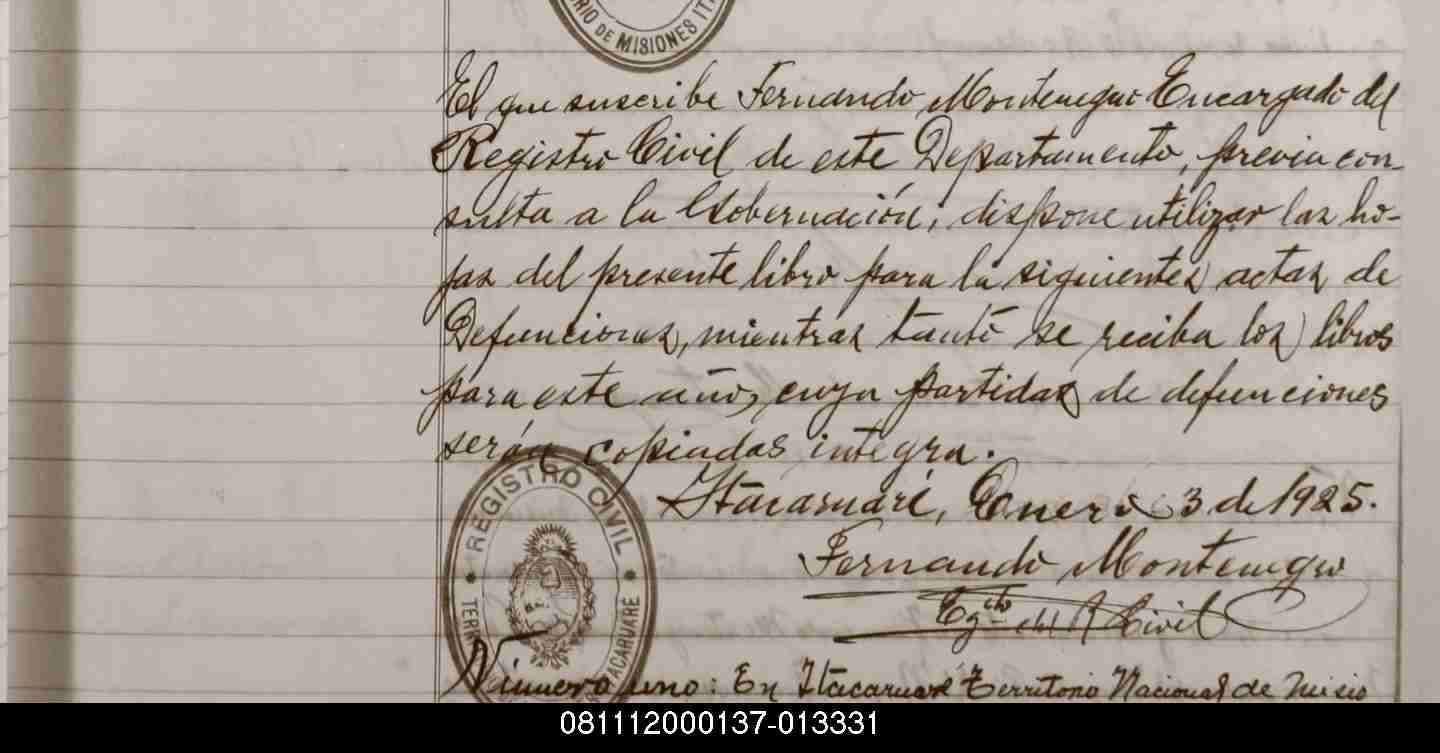 RIO DE MISIONES IT
El que suscribe Fernando Montenegro Encargado del
Registro Civil de este Departamento, previa con-
sulta a la Gobernación, dispone utilizar las ho-
jas del presente libro para la siguientes actas de
Defunciones, mientras tanto se reciba los libros
para este año, cuya partidas de defunciones
serán copiadas integra.
Itacaruaré, Enero 3 de 1925.
Fernando Montenegro
Egdo del R Civil
REGISTRO CIVIL
TERR ITACARUARE
Número uno: En Itacaruaré Territorio Nacional de Misio
081112000137-013331